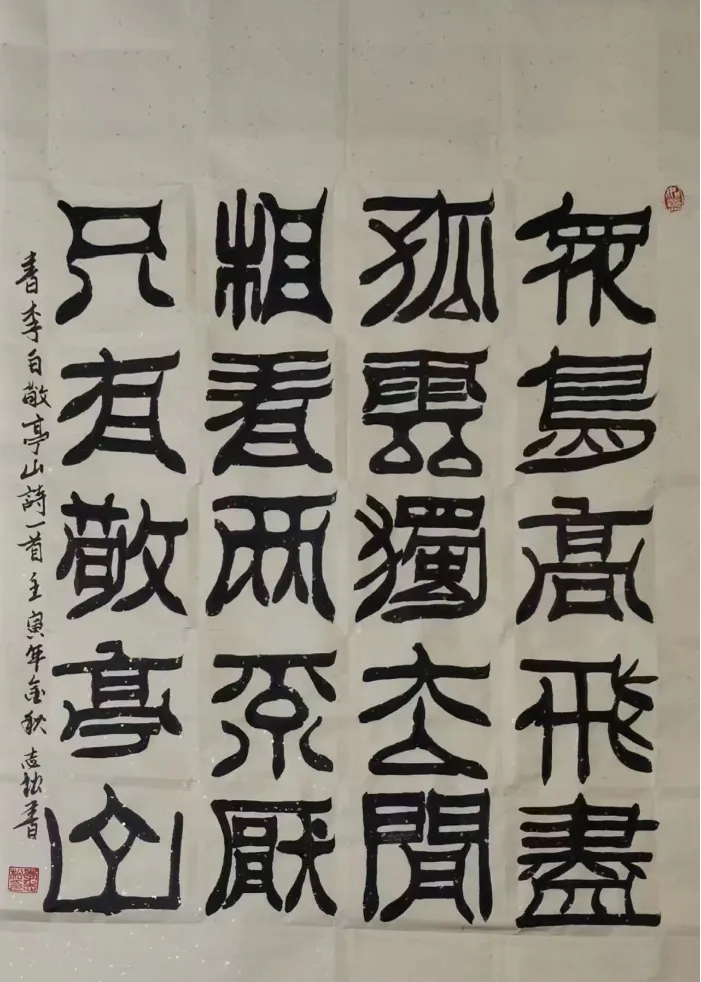 眾鳥高飛盡
孤雲獨去閒
相看兩不厭
只有敬亭山
書李白敬亭山詩一首壬寅年金秋志松書